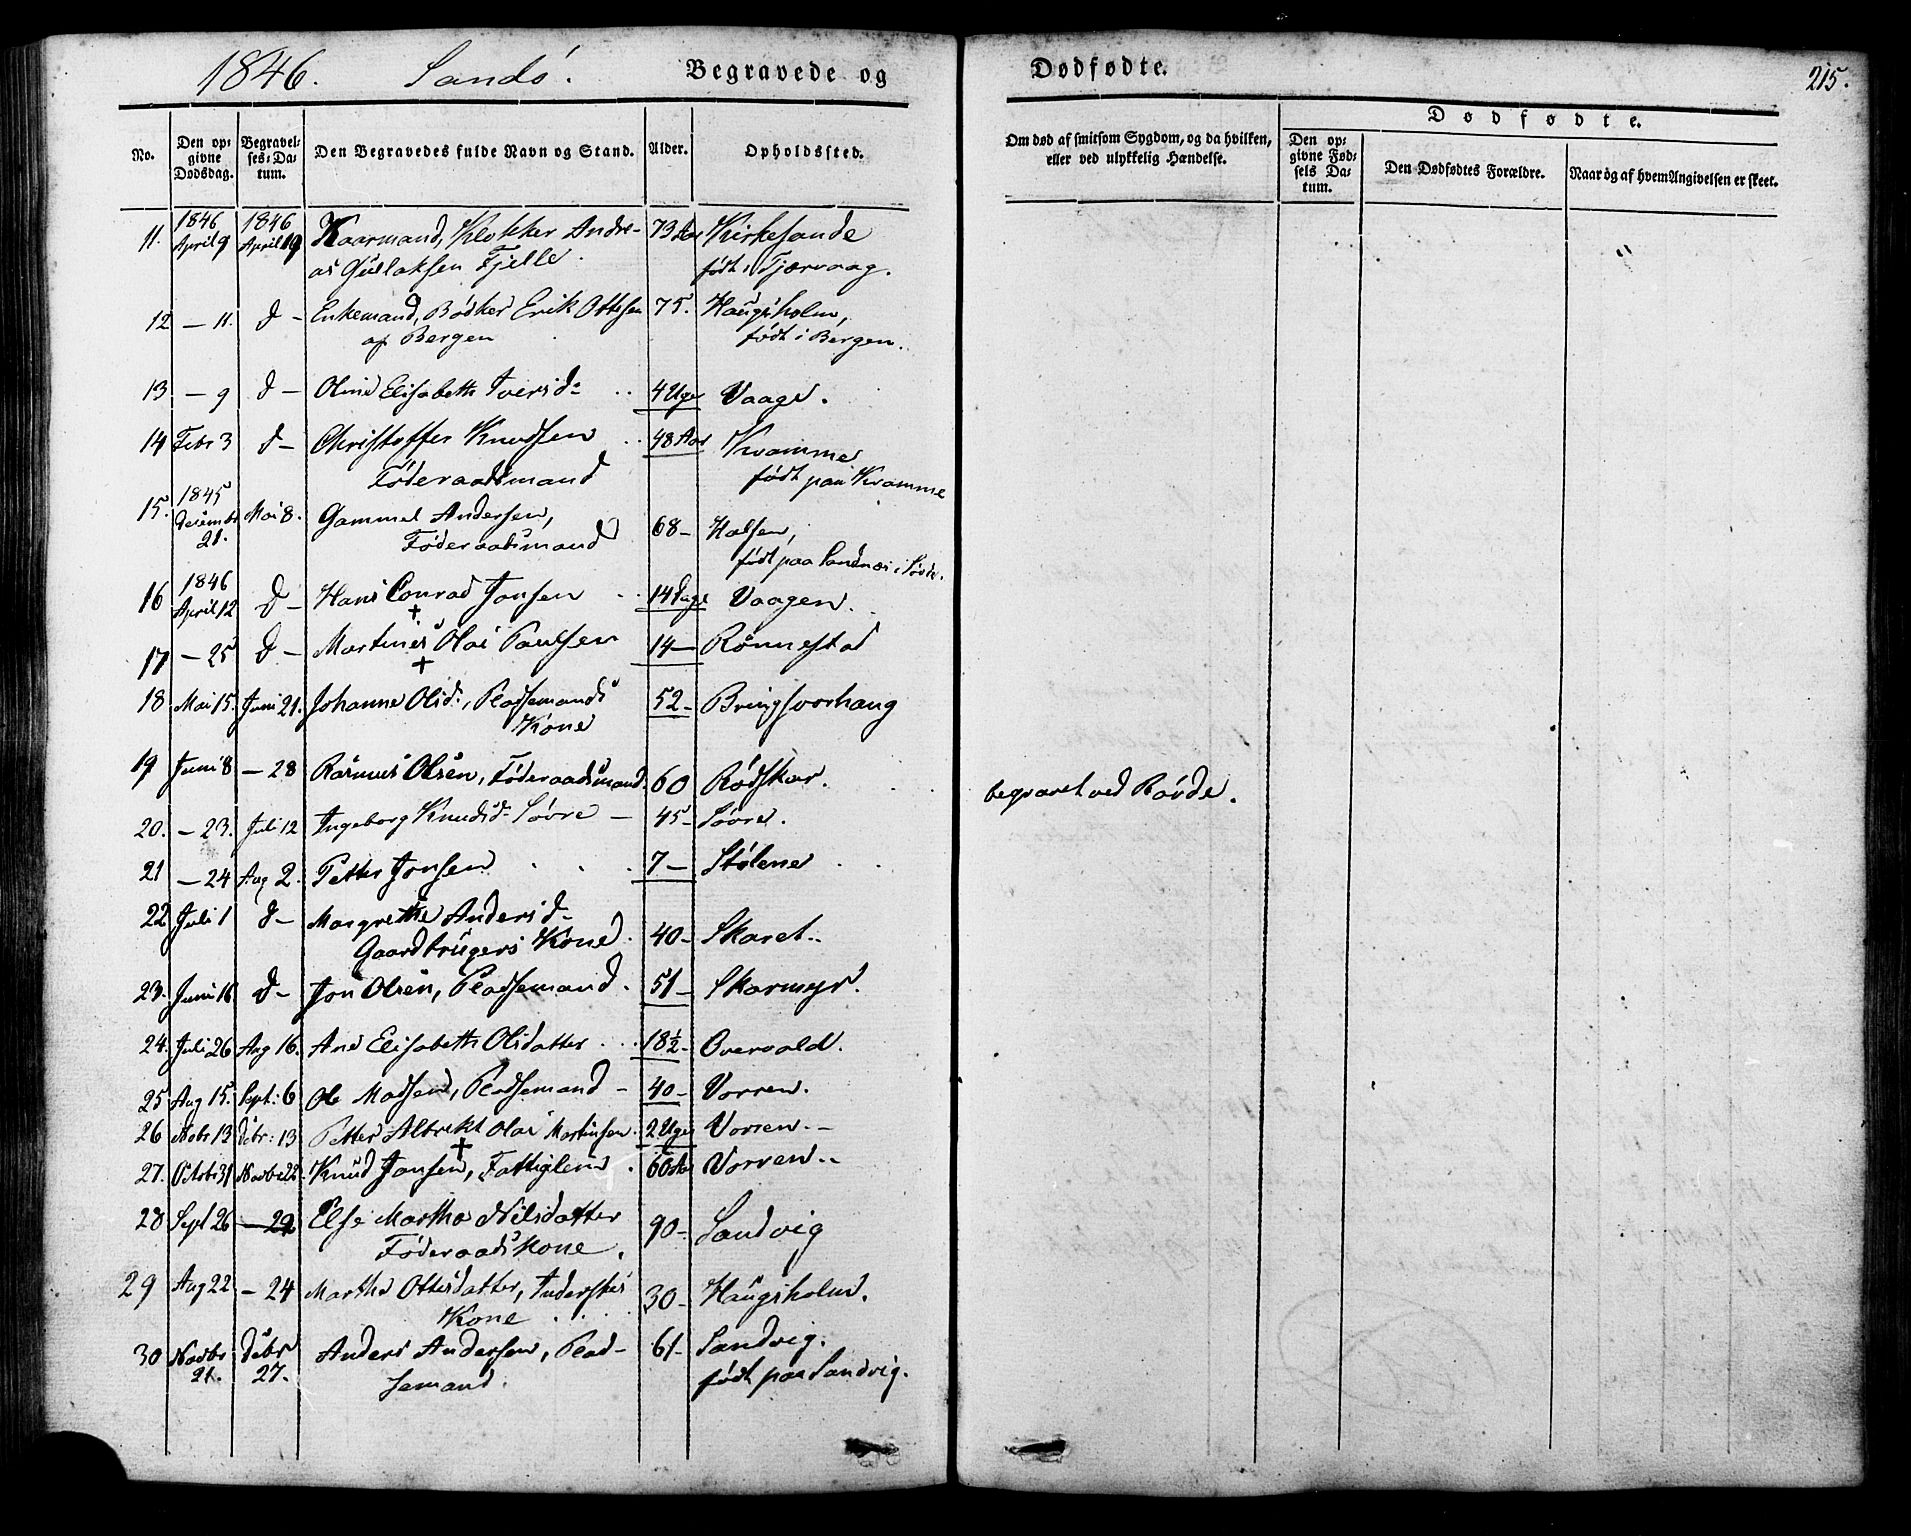 1846. Sandø. Begravede og Dødfødte. 215.
Dødfødte.
No. Den opgivne Dødsdag. Begravelses-Datum. Den Begravedes fulde Navn og Stand. Alder. Opholdssted. Om død af smitsom Sygdom, og da hvilken, eller ved ulykkelig Hændelse. Den opgivne Fødsels Datum. Den Dødfødtes Forældre. Naar og af hvem Angivelsen er skeet.
11. 1846 April 9 1846 April 19 Kaarmand, Klokker Andre- 73 Aar Kirkesande
as Gullaksen Fjelle. født i Tjærvaag.
12 – 11. d – Enkemand, Bødker Erik Ottesen 75. Haugsholm,
af Bergen født i Bergen.
13 – 9 d – Oline Elisabeth Iversd: 4 Uger Vaage.
14 Febr 3 d – Christoffer Knudsen 48 Aar Kvamme
Föderaadsmand født paa Kvamme
15. 1845 Decembr 21. Mai 8. Gammel Andersen, 68 – Halsen,
Føderaadsmand født paa Sandnæs i Søvde.
16 1846 April 12 d – Hans Conrad Jonsen 14 Dage Vaagen.
17 – 25 d – Martinus Olai Paulsen 14 – Rønnestad
18 Mai 15. Juni 21. Johanne Olsd:, Pladsemands 52 – Bringsvorhaug
Kone
19 Juni 8 – 28 Rasmus Olsen, Føderaadsmand 60 Rødskar. begravet ved Røvde.
20. – 23. Juli 12 Ingeborg Knudsd: Søvre – 45 – Søvre.
21 – 24 Aug 2. Petter Jonsen 7 – Stølene
22 Juli 1 d – Margrethe Andersd –
Gaardbrugers Kone. 40 – Skaret..
23. Juni 16 d – Jon Olsen, Pladsemand. 51 – Skarmyr.
24. Juli 26 Aug 16. Ane Elisabeth Olsdatter 18½ – Overvold.
25 Aug 15. Sept: 6 Ole Madsen, Pladsemand – 40 – Vorren.
26 Nobr 13 Debr: 13 Petter Albrekt Olai Martinsen. 2 Uger Vorren. –
27. Octobr 31 Novbr 22. Knud Jonsen, Fattiglem 60 Aar Vorren..
28 Sept 26 – 22 Else Martha Nilsdatter 90 – Sandvig
Föderaadskone.
29 Aug 22 – 24 Marthe Ottesdatter, Inderstes 30 – Haugsholm.
Kone
30 Novbr 21. Debr 27. Anders Andersen, Plad- 61 – Sandvig.
semand. født paa Sandvig.